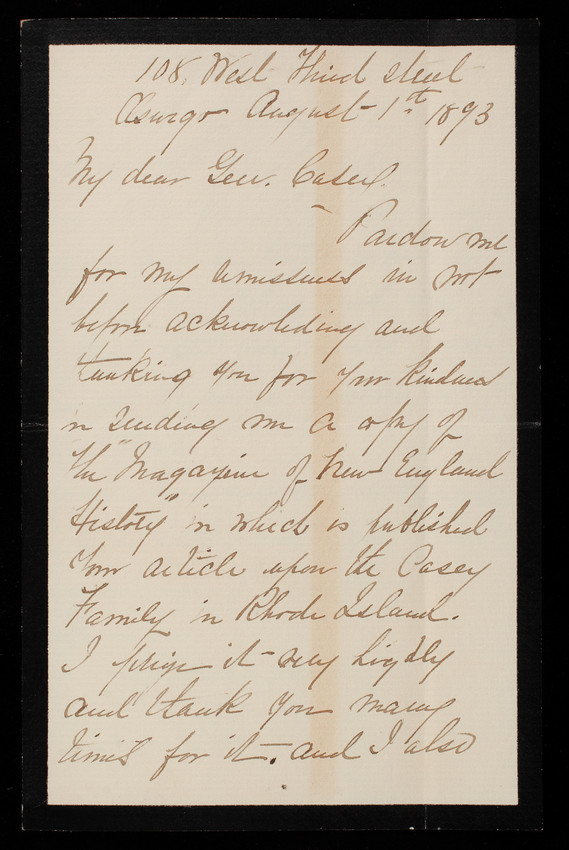 108. West Third street
Oswego August 1st 1893
My dear Gen. Casey.
Pardon me
for my remissness in not
before acknowledging and
thanking you for your kindness
in sending me a copy of
the "Magazine of New England
History" in which is published
your article upon the Casey
Family in Rhode Island.
I prize it very highly
and thank you many
times for it. and I also